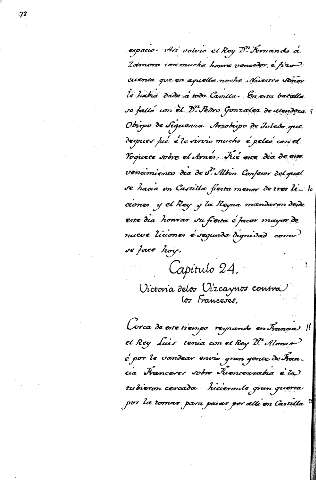 72
espacio. Asi volvio el Rey Dn. Fernando á
Zamora con mucha honra vencedor, é fizo
cuenta que en aquella noche Nuestro Señor
le habia dado á toda Castilla. En esta batalla
se falló con él Dn. Pedro Gonzalez de Mendoza
Obispo de Siguenza Arzobispo de Toledo que
despues fué é lo sirvio mucho é peleó con el
Roquete sobre el Arnés. Fué este dia de este
vencimiento dia de Sn. Albin Confesor del qual
se hacia en Castilla fiesta menor de tres li-
ciones y el Rey y la Reyna mandaron desde
este dia honrar su fiesta é facer mayor de
nueve liciones é segunda dignidad como
se face hoy.
Capitulo 24.
Victoria delos Vizcaynos contra
los Franceses.
Cerca de este tiempo reynando en Francia
el Rey Luis tenia con el Rey Dn. Alonso
é por le vandear envió gran gente de Fran-
cia Franceses sobre Fuenterrabia é la
tubieron cercada haciendole gran guerra
por la tomar para pasar por alli en Castilla